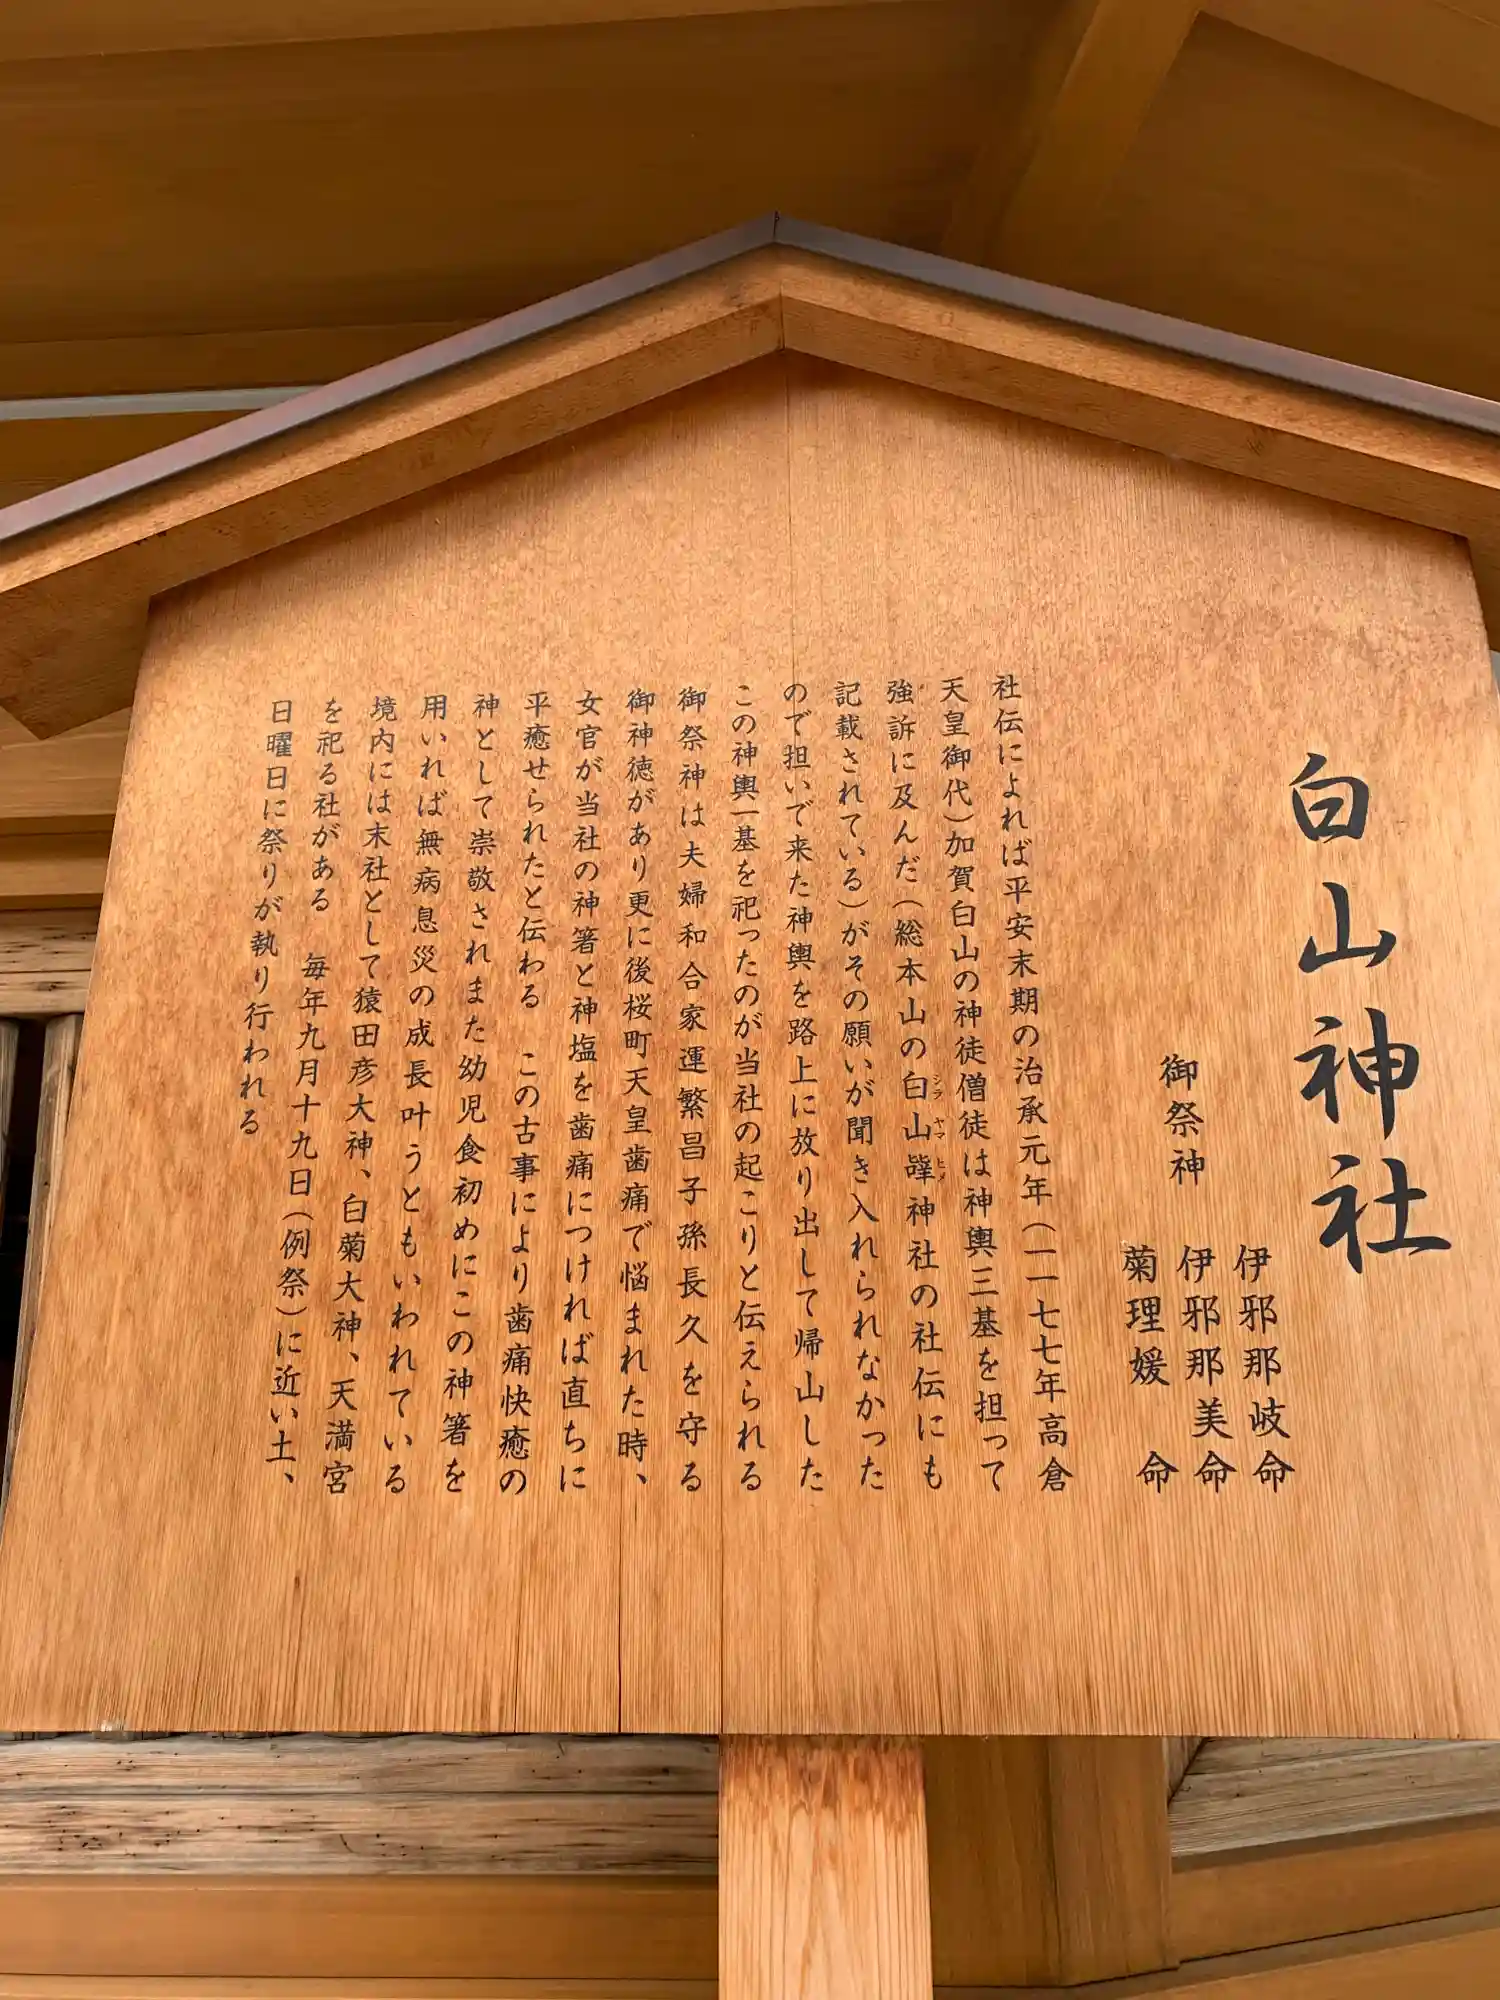 白山神社
御祭神
伊邪那岐命
伊邪那美命
菊理媛　命
社伝によれば平安末期の治承元年（一一七七年高倉
天皇御代）加賀白山の神徒僧徒は神輿三基を担って
強訴に及んだ（総本山の白山神社の社伝にも
シラ ヤマ ヒメ
記載されている）がその願いが聞き入れられなかった
ので担いで来た神輿を路上に放り出して帰山した
この神輿一基を祀ったのが当社の起こりと伝えられる
御祭神は夫婦和合家運繁昌子孫長久を守る
御神徳があり更に後桜町天皇歯痛で悩まれた時、
女官が当社の神箸と神塩を歯痛につければ直ちに
平癒せられたと伝わる　この古事により歯痛快癒の
神として崇敬されまた幼児食初めにこの神箸を
用いれば無病息災の成長叶うともいわれている
境内には末社として猿田彦大神、白菊大神、天満宮
を祀る社がある　毎年九月十九日（例祭）に近い土、
日曜日に祭りが執り行われる